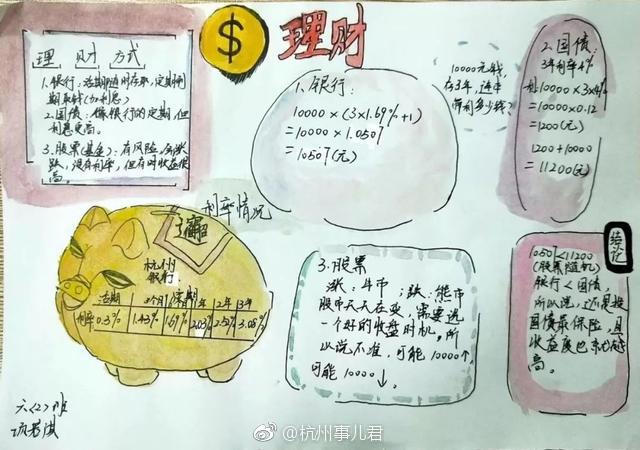 $
理财
理 财 方式
1.银行:活期随时存取,定期到
期取钱(加利息)
2.国债:像银行的定期,但
利息更高。
3.股票(基金):有风险,会涨
跌,没有利率,但有时收益很
高。
10000元钱,
存3年,连本
带利多少钱?
1、银行:
10000×(3×1.69%+1)
=10000×1.0507
=10507(元)
2.国债:
3年利率4%
利10000×3×4%
=10000×0.12
=1200(元)
1200+10000
=11200(元)
利率情况
招
杭州
银行
活期 3个月 1年 2年 3年
利率 0.3% 1.43% 1.69% 2.03% 2.52% 3.08%
3.股票
涨:牛市 ;跌:熊市
股市天天在变,需要选
一个好的收盘时机。所
以说不准,可能10000↑,
可能10000↓。
结论
10507<11200
(股票随机)
银行<国债,
所以说,还是投
国债最保险,且
收益度也
高。
六(2)班
@杭州事儿君